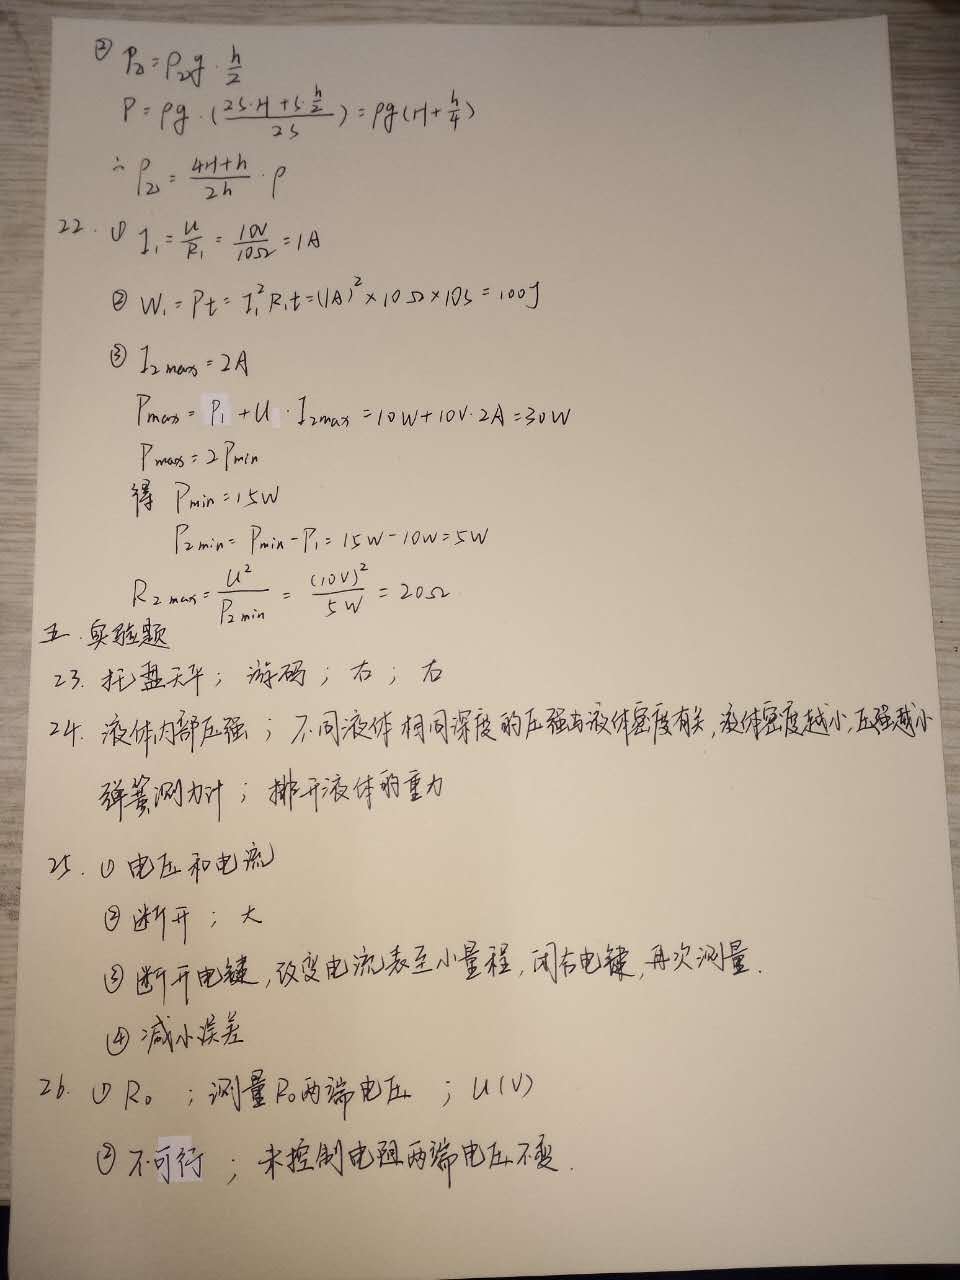 ② P₂=ρ₂g·h/2
P=ρg·(2S·H+S·h/2 / 2S)=ρg(H+h/4)
∴ρ₂=4H+h/2h·ρ
22. ① I₁=U/R₁=10V/10Ω=1A
② W₁=Pt=I₁²R₁t=(1A)²×10Ω×10s=100J
③ I₂max=2A
Pmax=P₁+U·I₂max=10W+10V·2A=30W
Pmax=2Pmin
得 Pmin=15W
P₂min=Pmin-P₁=15W-10W=5W
R₂max=U²/P₂min=(10V)²/5W=20Ω
五.实验题
23. 托盘天平；游码；右；右
24. 液体内部压强；不同液体相同深度的压强与液体密度有关,液体密度越小,压强越小
弹簧测力计；排开液体的重力
25. ① 电压和电流
② 断开；大
③ 断开电键,改变电流表至小量程,闭合电键,再次测量.
④ 减小误差
26. ① R₀；测量R₀两端电压；U(V)
② 不可行；未控制电阻两端电压不变.